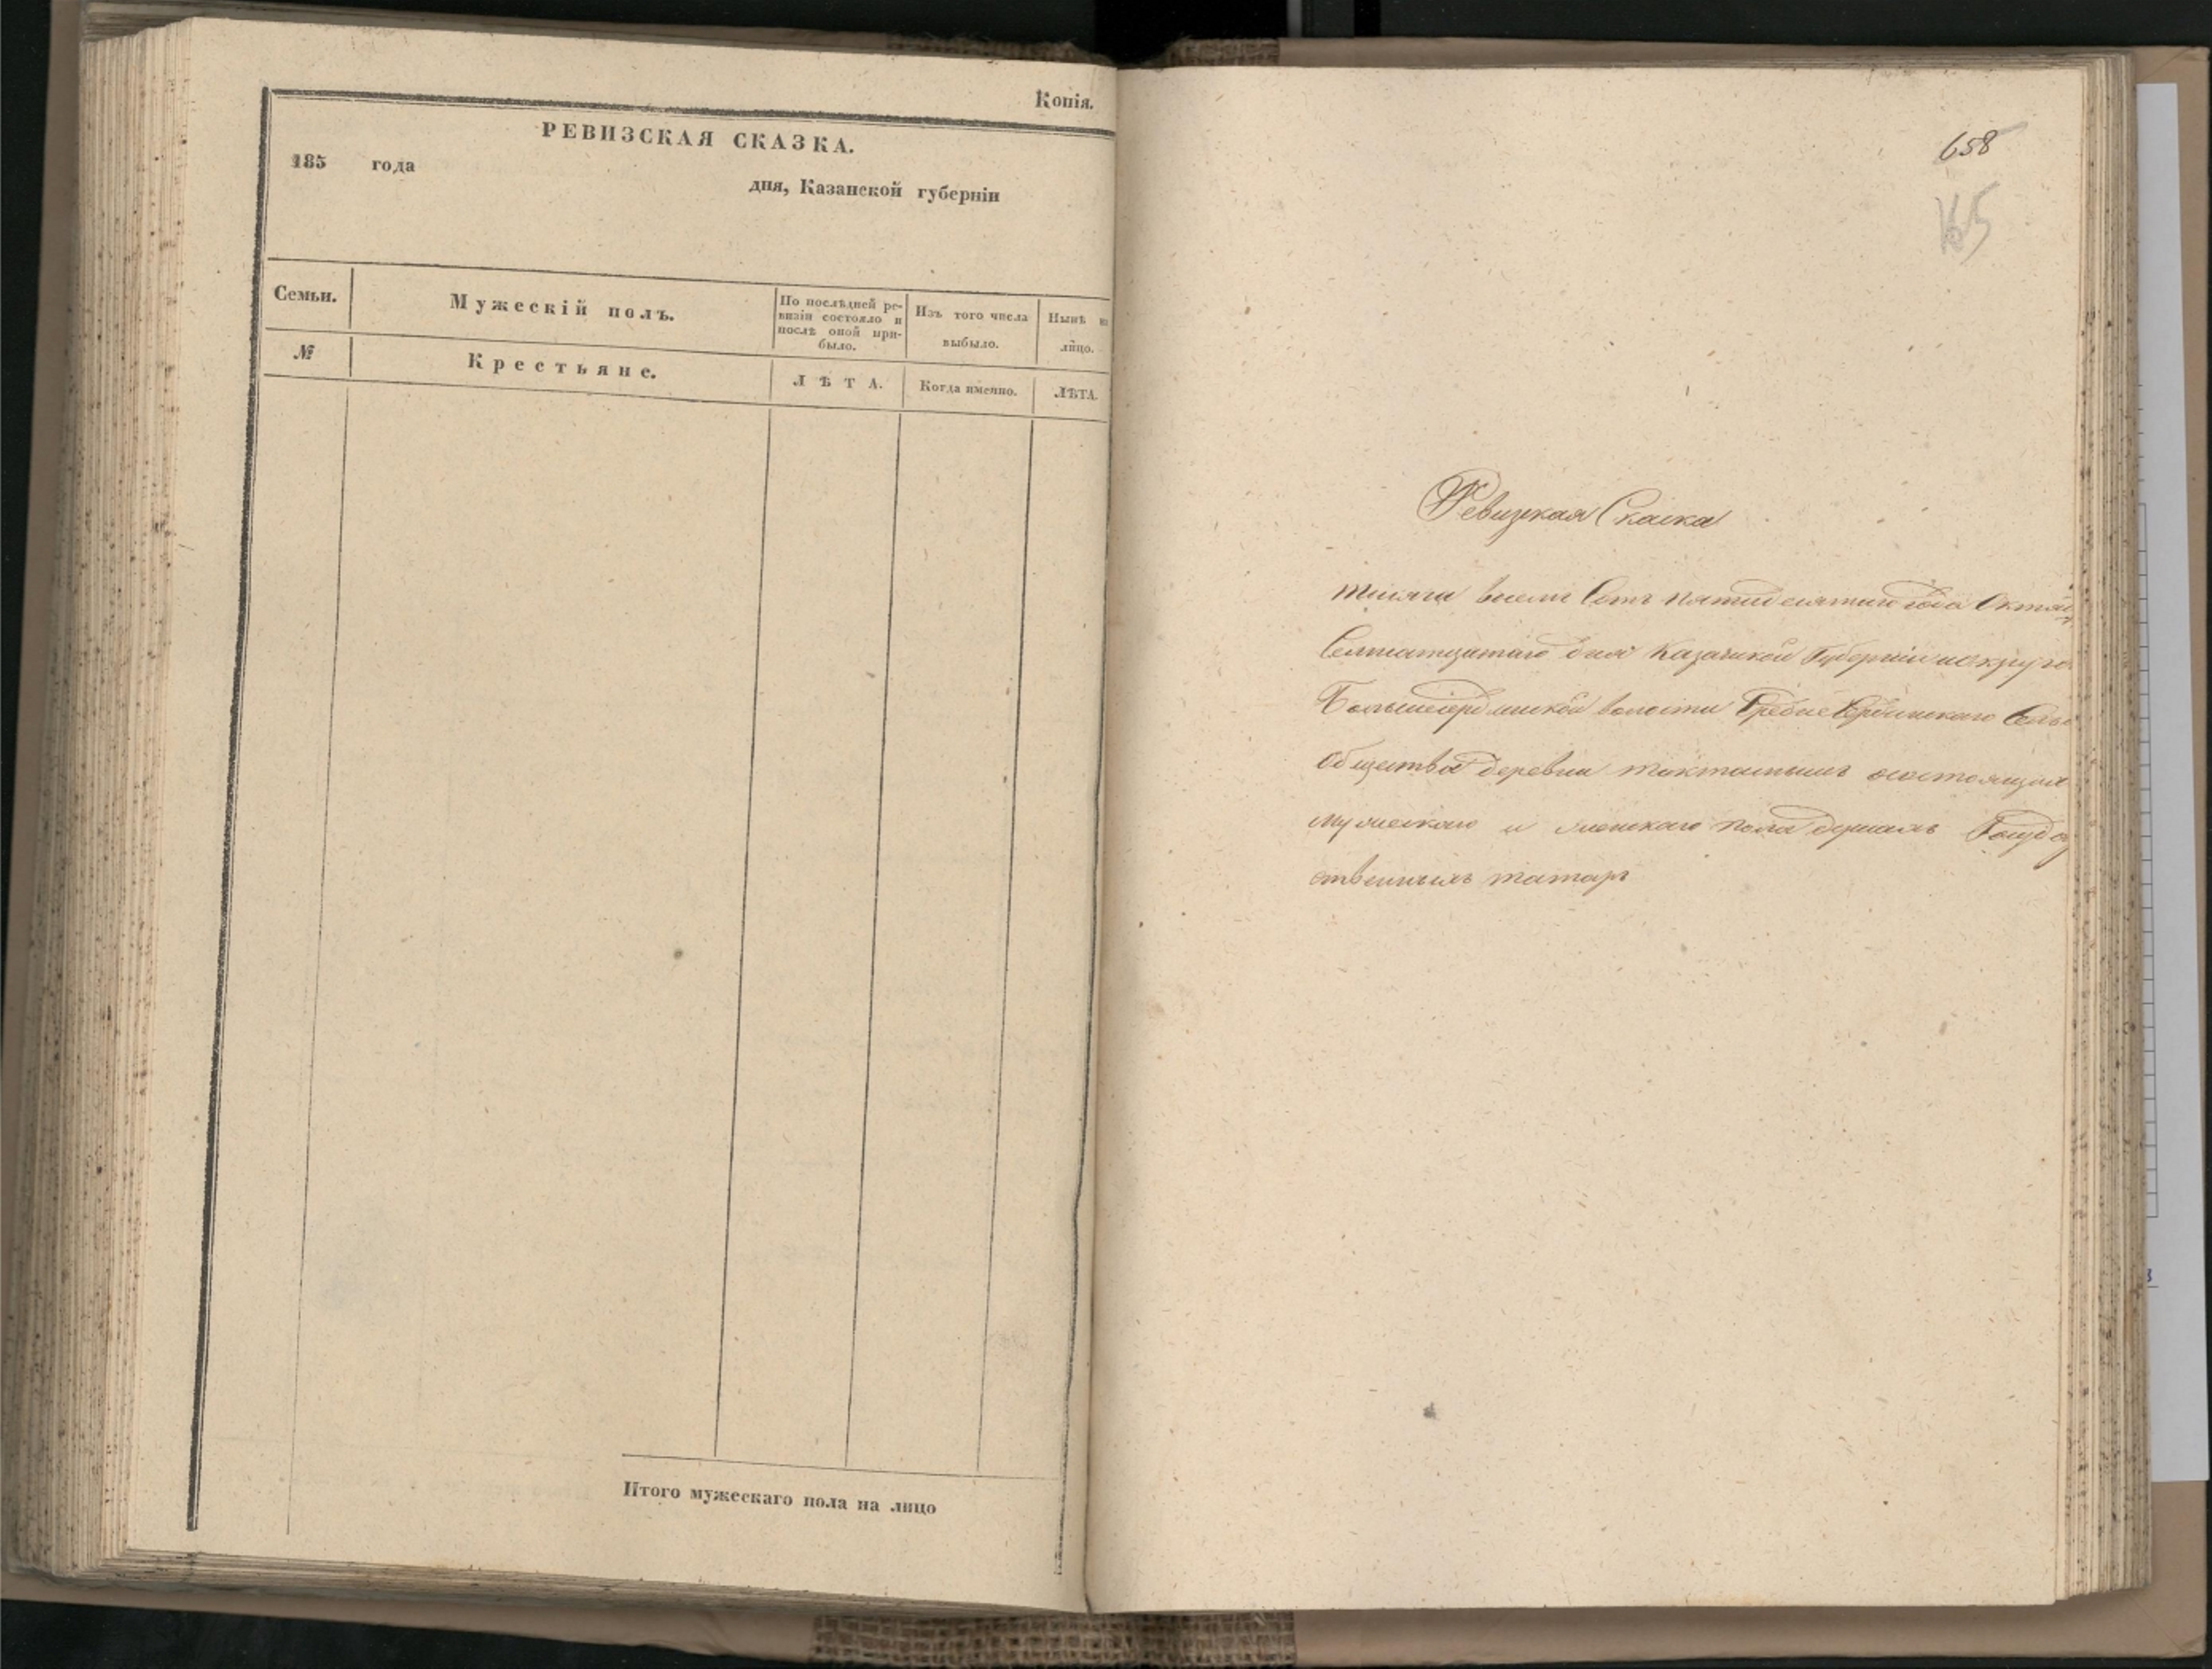 Копія.
РЕВИЗСКАЯ СКАЗКА.
185 года
дня, Казанской губерніи
Семьи.
Мужескій полъ.
По послѣдней ре-
визіи состояло и
послѣ оной при-
было.
Изъ того числа
выбыло.
Нынѣ на
лицо.
№
Крестьяне.
ЛѢТА.
Когда именно.
ЛѢТА.
Итого мужескаго пола на лицо
658
165
Ревизкая Скаска
тысяча восемь Сотъ пятидесятаго года Октяб
дня Казанской Губерніи и округа
волости Сель
Общества деревни состоящих
мужескаго и женскаго пола душамъ Госуда
ственнымъ татаръ